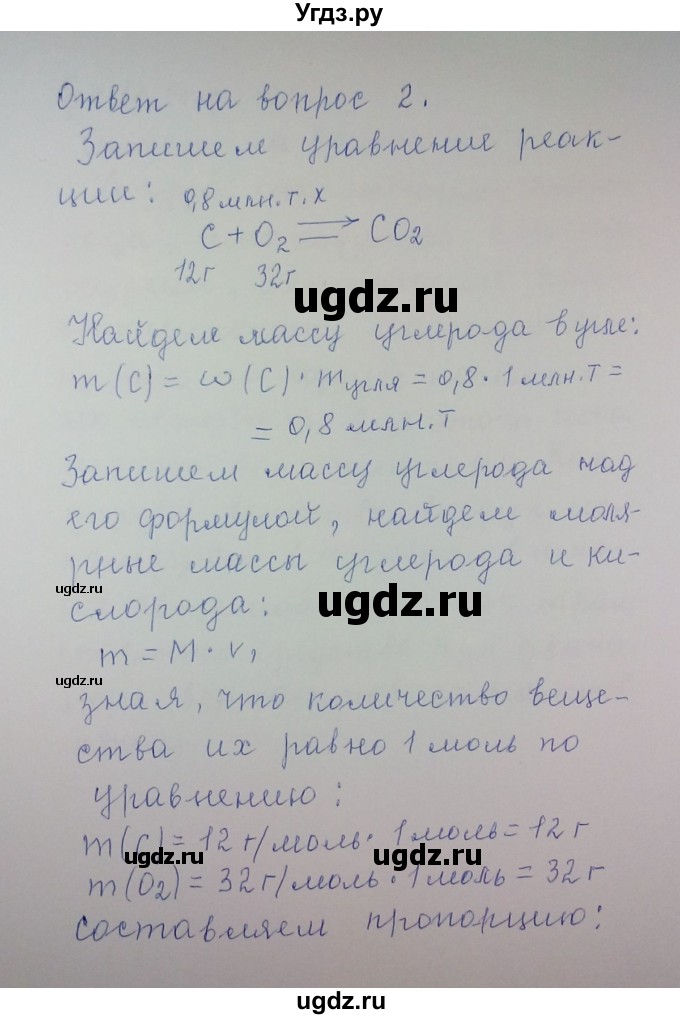 Угдз.ру
Ответ на вопрос 2.
Запишем уравнение реак-
ции: 0,8 млн.т. x
C + O₂ ⇒ CO₂
12г 32г
ugdz.ru
Найдем массу углерода в угле:
m (C) = ω (C) · mугля = 0,8 · 1 млн.т =
= 0,8 млн.т
Запишем массу углерода над
его формулой, найдем моля-
рные массы углерода и ки-
ugdz.ru
слорода:
ugdz.ru
m = M · ν,
ugdz.ru
зная, что количество веще-
ства их равно 1 моль по
уравнению:
m(C) = 12 г/моль · 1 моль = 12 г
ugdz.ru
ugdz.ru
m(O₂) = 32 г/моль · 1 моль = 32 г
составляем пропорцию:
ugdz.ru
ugdz.ru